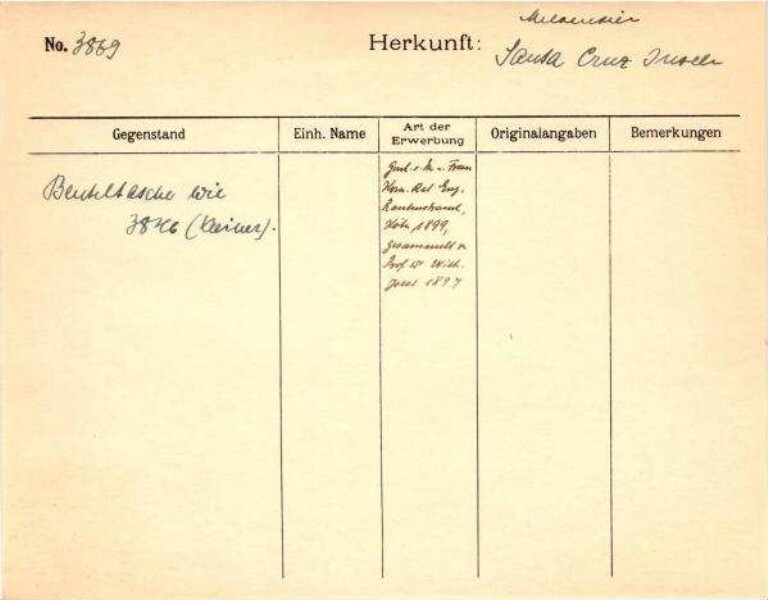 Melanesien
No. 3869
Herkunft:
Santa Cruz Inseln
Gegenstand
Einh. Name
Art der
Erwerbung
Originalangaben
Bemerkungen
Beuteltasche wie
3846 (kleiner).
Gesch. v. Hr. u. Frau
Kom. Rat Eug.
Rautenstrauch,
Köln 1899,
gesammelt v.
Prof. Dr. Wilh.
Joest 1897